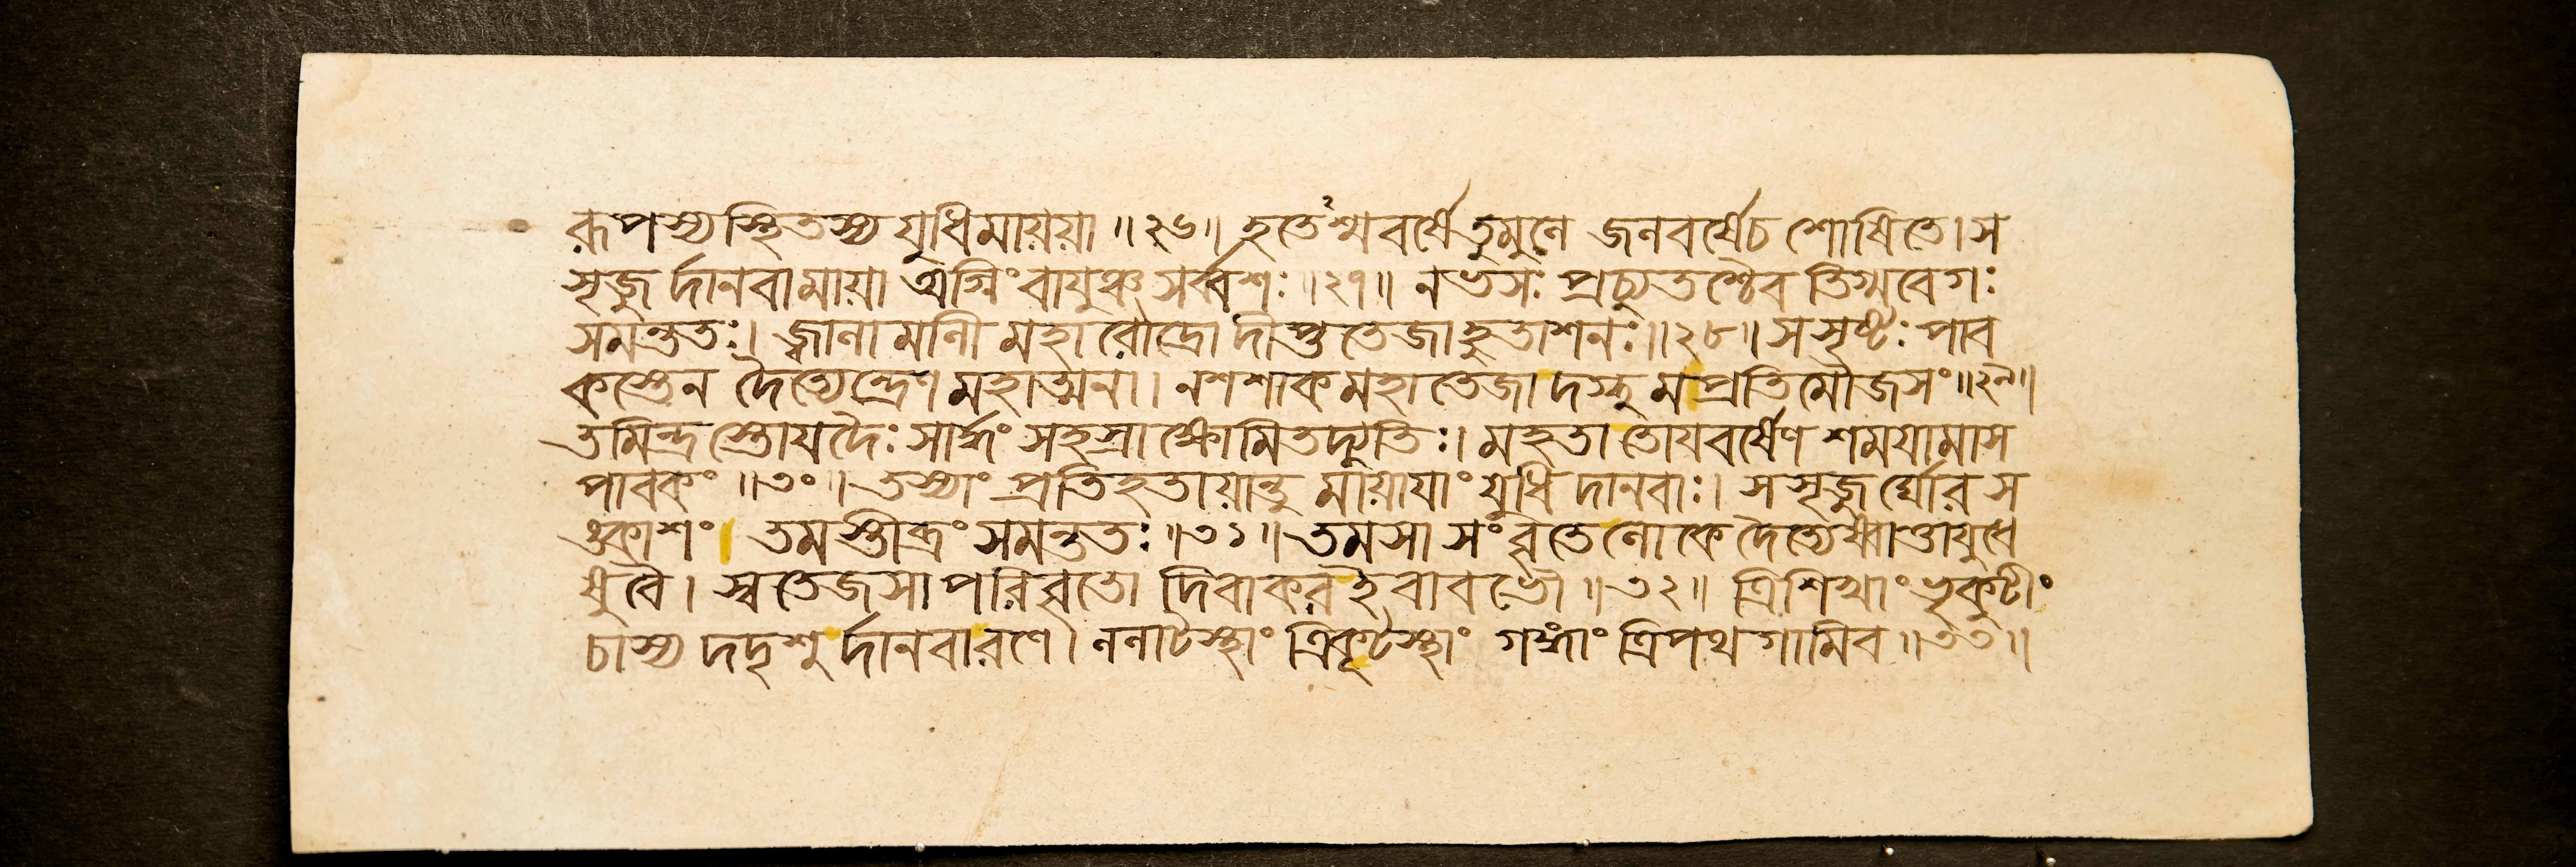 রূপস্যস্থিতস্য যুধিমায়য়া ॥২৬॥ হতেঽশ্মবর্ষেতুমুলে জলবর্ষেচ শোষিতে। স
সৃজুর্দানবামায়া অগ্নিং বায়ুঞ্চ সর্ব্বশঃ ॥২৭॥ নভসঃ প্রচ্যুতশ্চৈব তিগ্মবেগঃ
সমন্ততঃ। জ্বালামালী মহারৌদ্রো দীপ্ততেজাহুতাশনঃ ॥২৮॥ স সৃষ্টঃ পাব
কস্তেন দৈত্যেন্দ্রেণ মহাত্মনা। নশশাকমহাতেজা দগ্ধুমপ্রতিমৌজসং ॥২৯॥
তমিন্দ্রস্তোযদৈঃ সার্দ্ধং সহস্রাক্ষোমিতদ্যুতিঃ। মহতা তোযবর্ষেণ শমযামাস
পাবকং ॥৩০॥ তস্যাং প্রতিহতায়ান্তু মায়াযাং যুধি দানবাঃ। সসৃজুর্ঘোরস
ঙ্কাশং। তমস্তীব্রং সমন্ততঃ ॥৩১॥ তমসা সংবৃতেলোকে দৈত্যেষ্বাত্তাযুধে
ষু বৈ। স্বতেজসা পরিবৃতো দিবাকরইবাবভৌ ॥৩২॥ ত্রিশিখাং ভৃকুটীং
চাস্য দদৃশুর্দানবারণে। ললাটস্থাং ত্রিকূটস্থাং গঙ্গাং ত্রিপথগামিব ॥৩৩॥